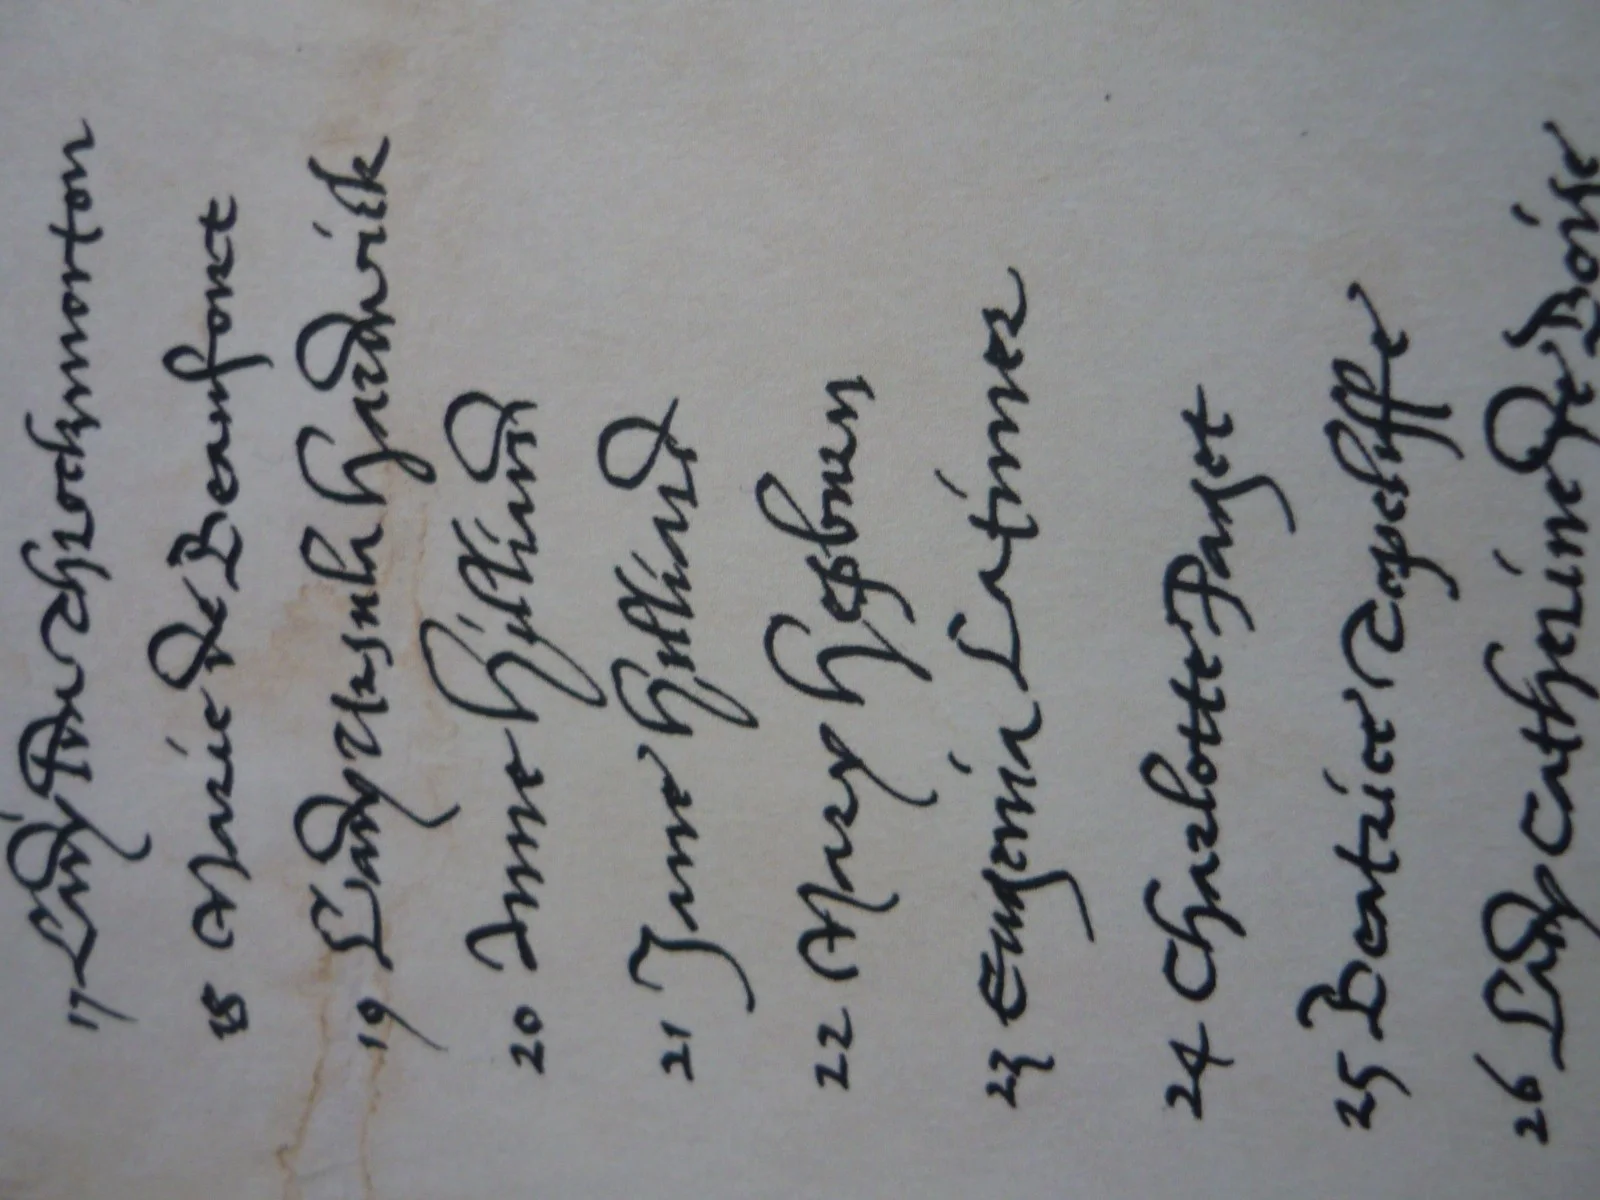 17 Lady Prw Throchmorton
18 Marie de Beaufort
19 Lady Ursula Hardwick
20 Anne Hilliard
21 Jane Hilliard
22 Mary Hepburn
23 Eugenia Latimer
24 Charlotte Paget
25 Beatrice Topcliffe
26 Lady Catherine de Boise